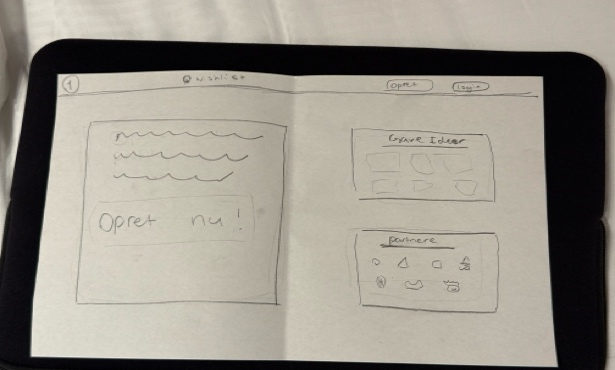 1
@ wishlist
Opret
Login
Opret nu!
Gave Ideer
partnere